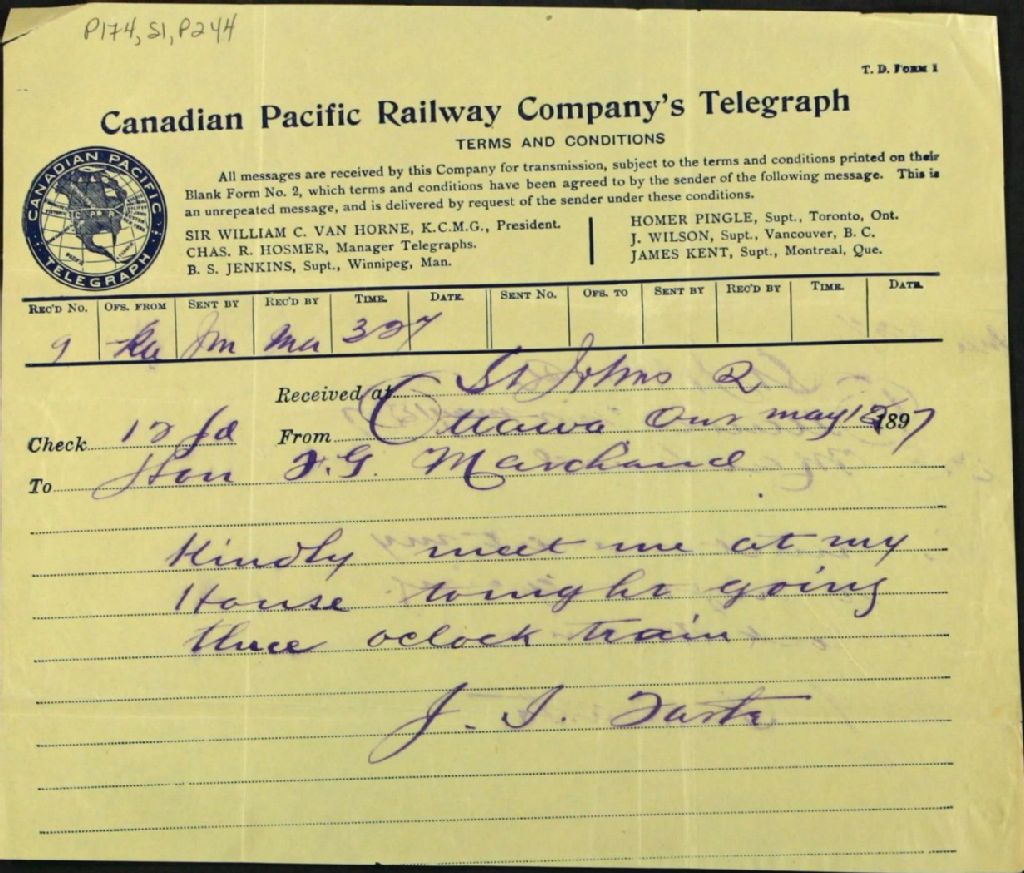 P174, S1, P244
T. D. FORM 1
Canadian Pacific Railway Company's Telegraph
TERMS AND CONDITIONS
All messages are received by this Company for transmission, subject to the terms and conditions printed on their
Blank Form No. 2, which terms and conditions have been agreed to by the sender of the following message. This is
an unrepeated message, and is delivered by request of the sender under these conditions.
SIR WILLIAM C. VAN HORNE, K.C.M.G., President.
CHAS. R. HOSMER, Manager Telegraphs.
B. S. JENKINS, Supt., Winnipeg, Man.
HOMER PINGLE, Supt., Toronto, Ont.
J. WILSON, Supt., Vancouver, B. C.
JAMES KENT, Supt., Montreal, Que.
CANADIAN PACIFIC
TELEGRAPH
REC'D NO. OFS. FROM SENT BY REC'D BY TIME. DATE. SENT NO. OFS. TO SENT BY REC'D BY TIME. DATE.
9 Jm Ma 327
Received at St Johns Q
Check 12 From Ottawa Ont may 1897
To Hon F.G. Marchand
Kindly meet me at my
House tonight going
three oclock train
J. I. Tarte